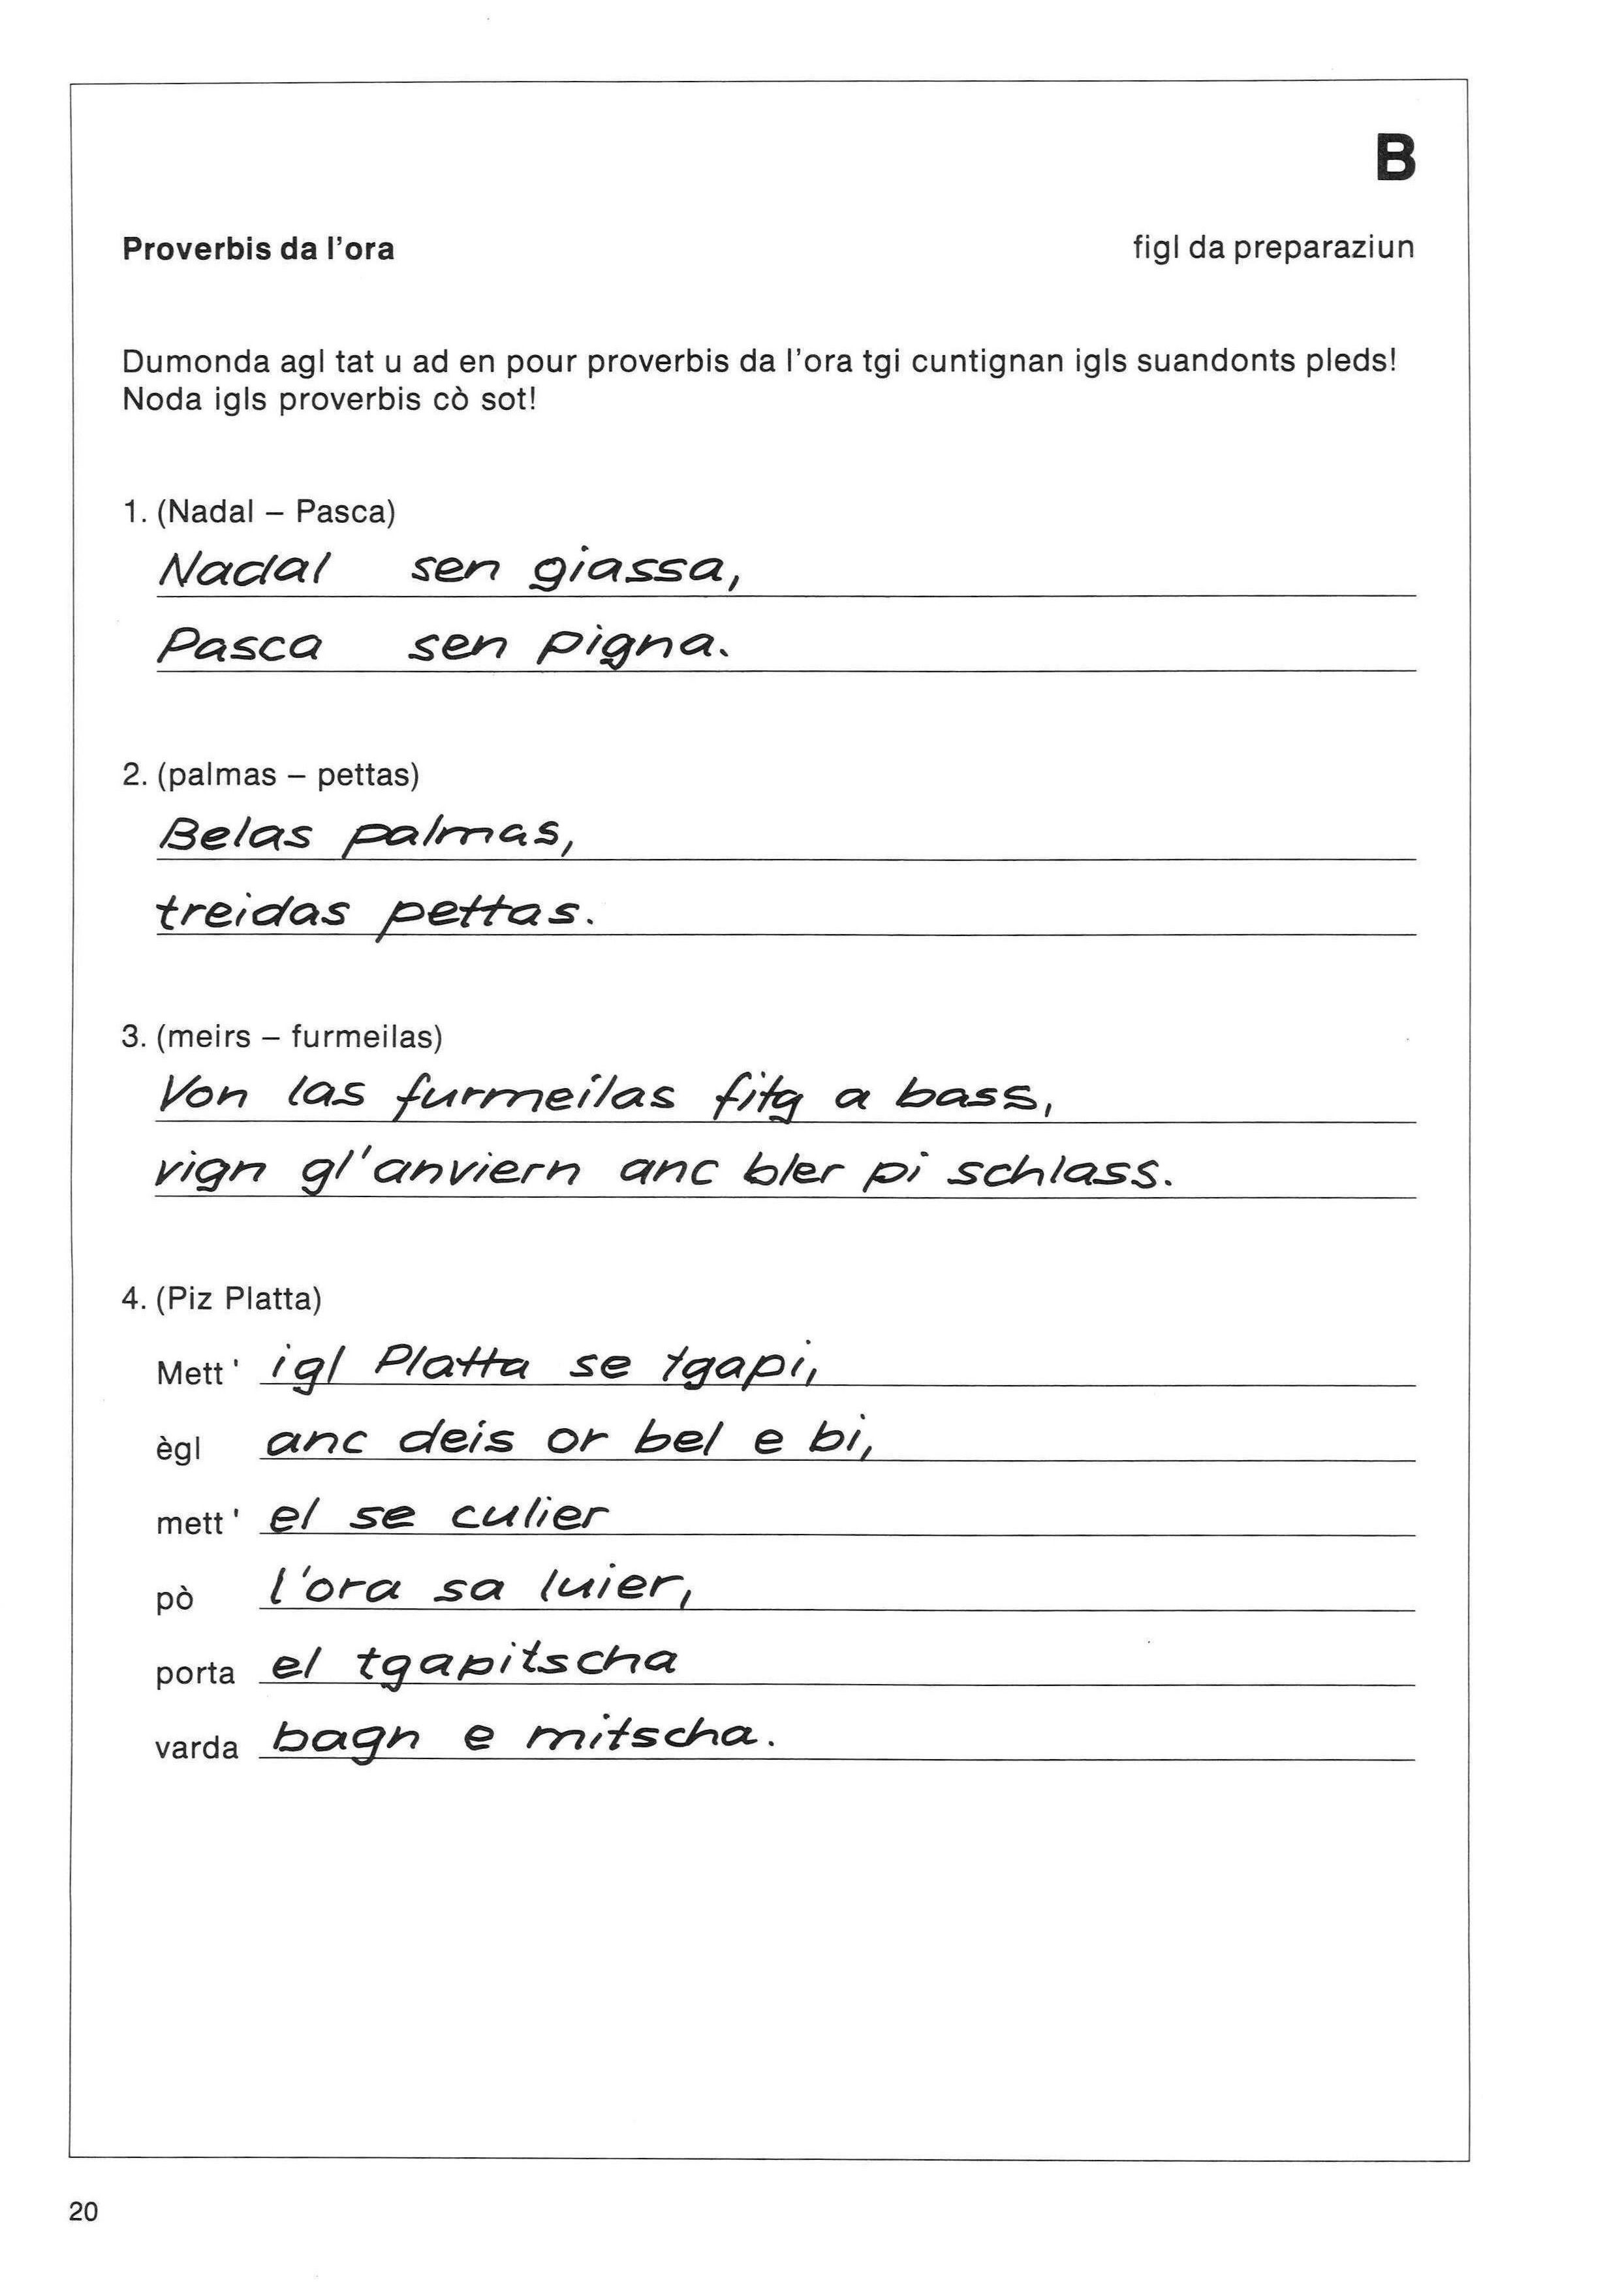 B
Proverbis da l'ora figl da preparaziun
Dumonda agl tat u ad en pour proverbis da l'ora tgi cuntignan igls suandonts pleds!
Noda igls proverbis cò sot!
1. (Nadal – Pasca)
Nadal sen giassa,
Pasca sen pigna.
2. (palmas – pettas)
Belas palmas,
treidas pettas.
3. (meirs – furmeilas)
Von las furmeilas fitg a bass,
vign gl'anviern anc bler pi schlass.
4. (Piz Platta)
Mett' igl Platta se tgapi,
ègl anc deis or bel e bi,
mett' el se culier
pò l'ora sa luier,
porta el tgapitscha
varda bagn e mitscha.
20